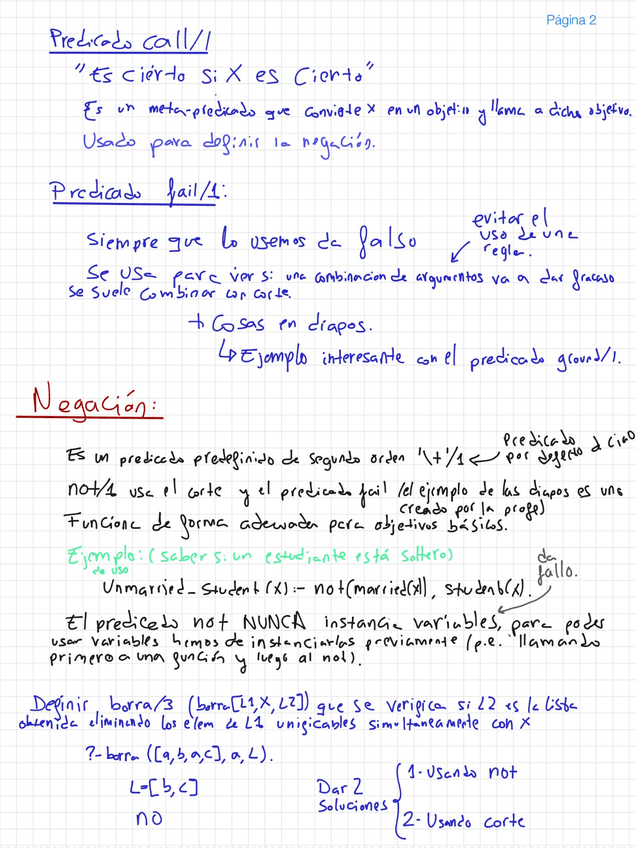 Página 2
Predicado call/1
"Es cierto si X es Cierto"
Es un meta-predicado que convierte X en un objetivo y llama a dicho objetivo.
Usado para definir la negación.
Predicado fail/1:
Siempre que lo usemos da falso
evitar el
uso de una
regla.
Se usa para ver si una combinacion de argumentos va a dar fracaso
se suele combinar con corte.
+ Cosas en diapos.
↳ Ejemplo interesante con el predicado ground/1.
Negación:
Es un predicado predefinido de segundo orden '\+'/1 ←
Predicado
por defecto d ciao
not/1 usa el corte y el predicado fail (el ejemplo de las diapos es uno
creado por la profe)
Funciona de forma adecuada para objetivos básicos.
Ejemplo: (saber si un estudiante está soltero)
de uso
Unmarried_student(X):- not(married(X)), student(X).
da
fallo.
El predicado not NUNCA instancia variables, para poder
usar variables hemos de instanciarlas previamente (p.e. llamando
primero a una función y luego al not).
Definir borra/3 (borra[L1,X,L2]) que se verifica si L2 es la lista
obtenida eliminando los elem de L1 unificables simultaneamente con X
?-borra ([a,b,a,c], a, L).
L=[b,c]
no
Dar 2
Soluciones
1- Usando not
2- Usando corte